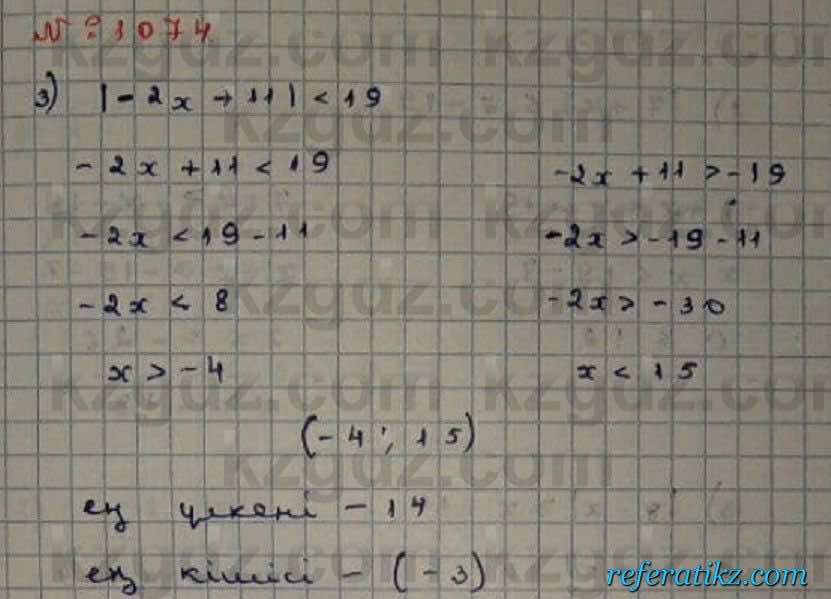 № 1074.
3) |-2x+11|<19
-2x+11<19 -2x+11>-19
-2x<19-11 -2x>-19-11
-2x<8 -2x>-30
x>-4 x<15
(-4; 15)
ең үлкені - 14
ең кішісі - (-3)
kzgdz.com
referatikz.com